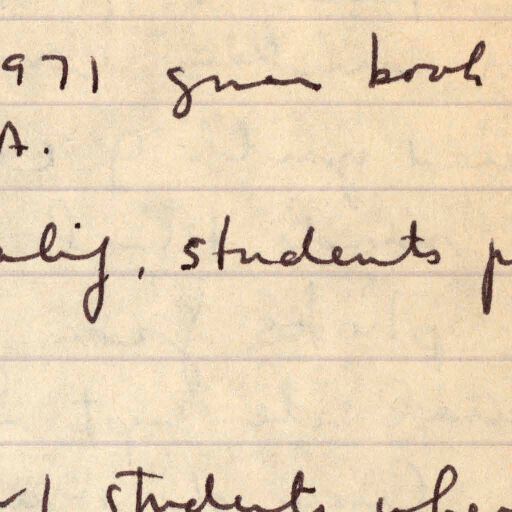 971 given book
A.
alif, students p
students when